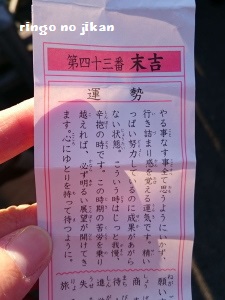 ringo no jikan
第四十三番 末吉
運勢
やる事なす事全て思うようにいかず、
行き詰まり感を覚える運気です。精い
っぱい努力しているのに成果があがら
ない状態。こういう時はじっと我慢。
辛抱の時です。この時期の苦労を乗り
越えれば、必ず明るい展望が開けてき
ます。心にゆとりを持って待つように。